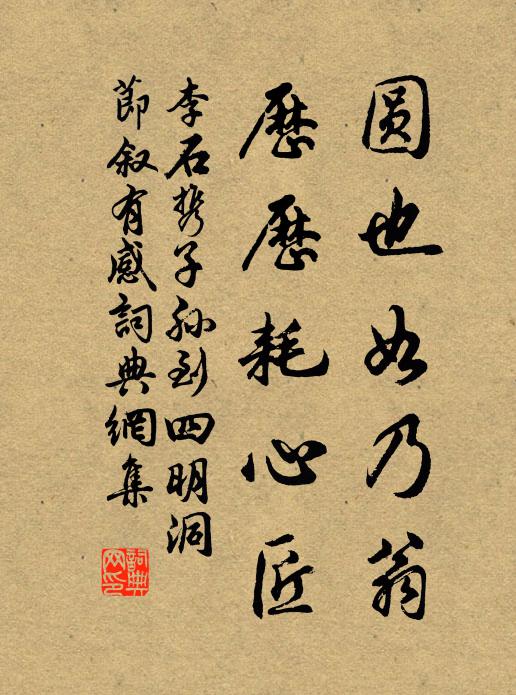 圆也如乃翁
歷歷耗心匠
李石携子孙到四明洞
節叙有感詞典網集
詞典网印